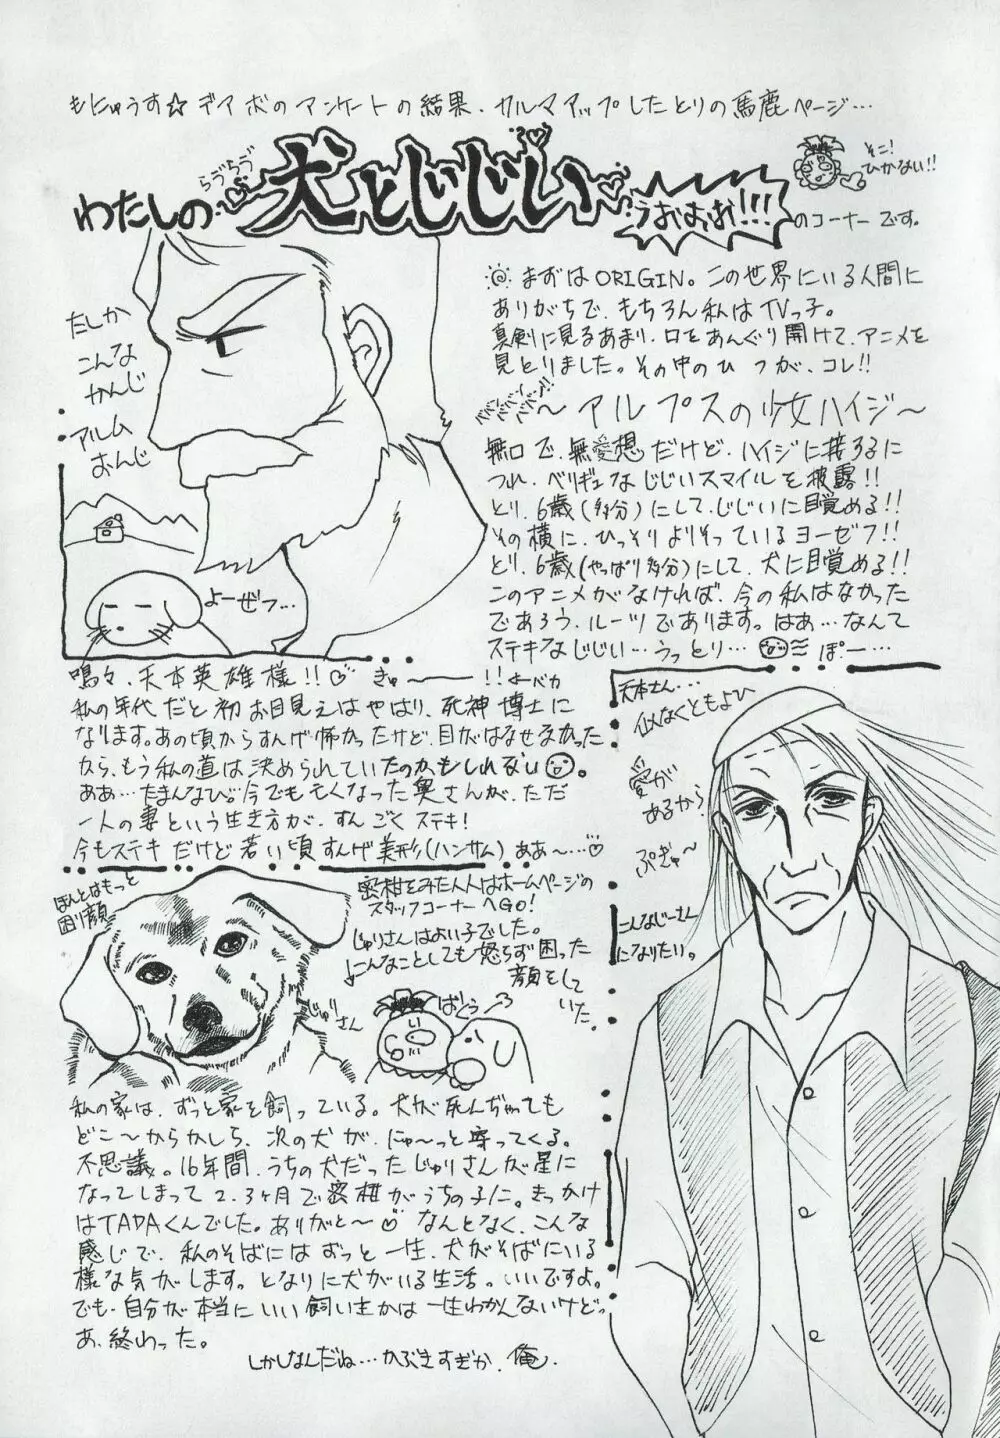 もにゅうす☆デアボのアンケートの結果、カルマアップしたとりの馬鹿ページ…
らづちづ
わたしの
犬とじじい
うおぉぉ!!!
のコーナーです。
そこ!
ひかない!!
たしか
こんな
かんじ
アルム
おんじ
よーぜフ…
まずはORIGIN。この世界にいる人間に
ありがちで、もちろん私はTVっ子。
真剣に見るあまり、口をあんぐり開けて、アニメを
見とりました。その中のひとつが、コレ!!
〜アルプスの少女ハイジ〜
無口で、無愛想だけど、ハイジに接するに
つれ、ベリギュなじじいスマイルを披露!!
とり、6歳(多分)にして、じじいに目覚める!!
その横に、ひっそりよりそっているヨーゼフ!!
とり、6歳(やっぱり多分)にして、犬に目覚める!!
このアニメがなければ、今の私はなかった
であろう、ルーツであります。はあ…なんて
ステキなじじい…うっとり… ぽー…
鳴々、天本英雄様!! きゅ〜――!!よーべカ
私の年代だと初お目見えはやはり、死神博士に
なります。あの頃からすんげ怖かったけど、目がはなせなかった
から、もう私の道は決められていたのかもしれない。
ああ…たまんなひ。今でも亡くなった奥さんが、ただ
一人の妻という生き方が、すんごくステキ!
今もステキだけど若い頃すんげ美形(ハンサム)ああ〜…
天本さん…
似なくともよひ
愛が
あるから
ぷぎゅ〜
こんなじーさん
になりたい。
ほんとはもっと
困り顔
蜜柑をみた人はホームページの
スタッフコーナーへGO!
じゅりさんはよい子でした。
こんなことしても怒らず困った
顔をして
いた。
じゅりさん
ばくぅ
私の家は、ずっと家を飼っている。犬が死んぢゃっても
どこ〜からかしら、次の犬が、にゅ〜っと寄ってくる。
不思議。16年間、うちの犬だったじゅりさんが星に
なってしまって2、3ヶ月で蜜柑がうちの子に。きっかけ
はTADAくんでした。ありがと〜 なんとなく、こんな
感じで、私のそばにはずっと一生、犬がそばにいる
様な気がします。となりに犬がいる生活。いいですよ。
でも、自分が本当にいい飼い主かは一生わかんないけどっ
あ、終わった。
しかしなんだね…かぶきすぎか、俺、